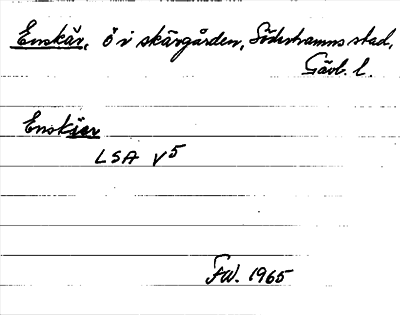 Enskär, ö i skärgården, Söderhamns stad,
Gävl. l.
Enskier
LSA V5
FW. 1965